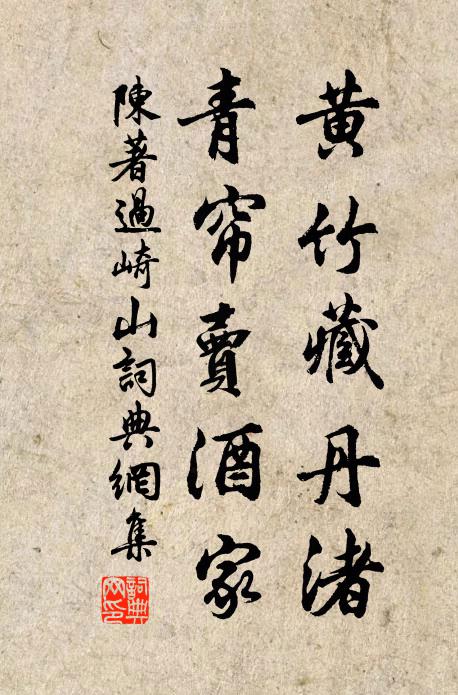 黄竹藏丹渚
青帘賣酒家
陳著過崎山詞典網集
詞典網印